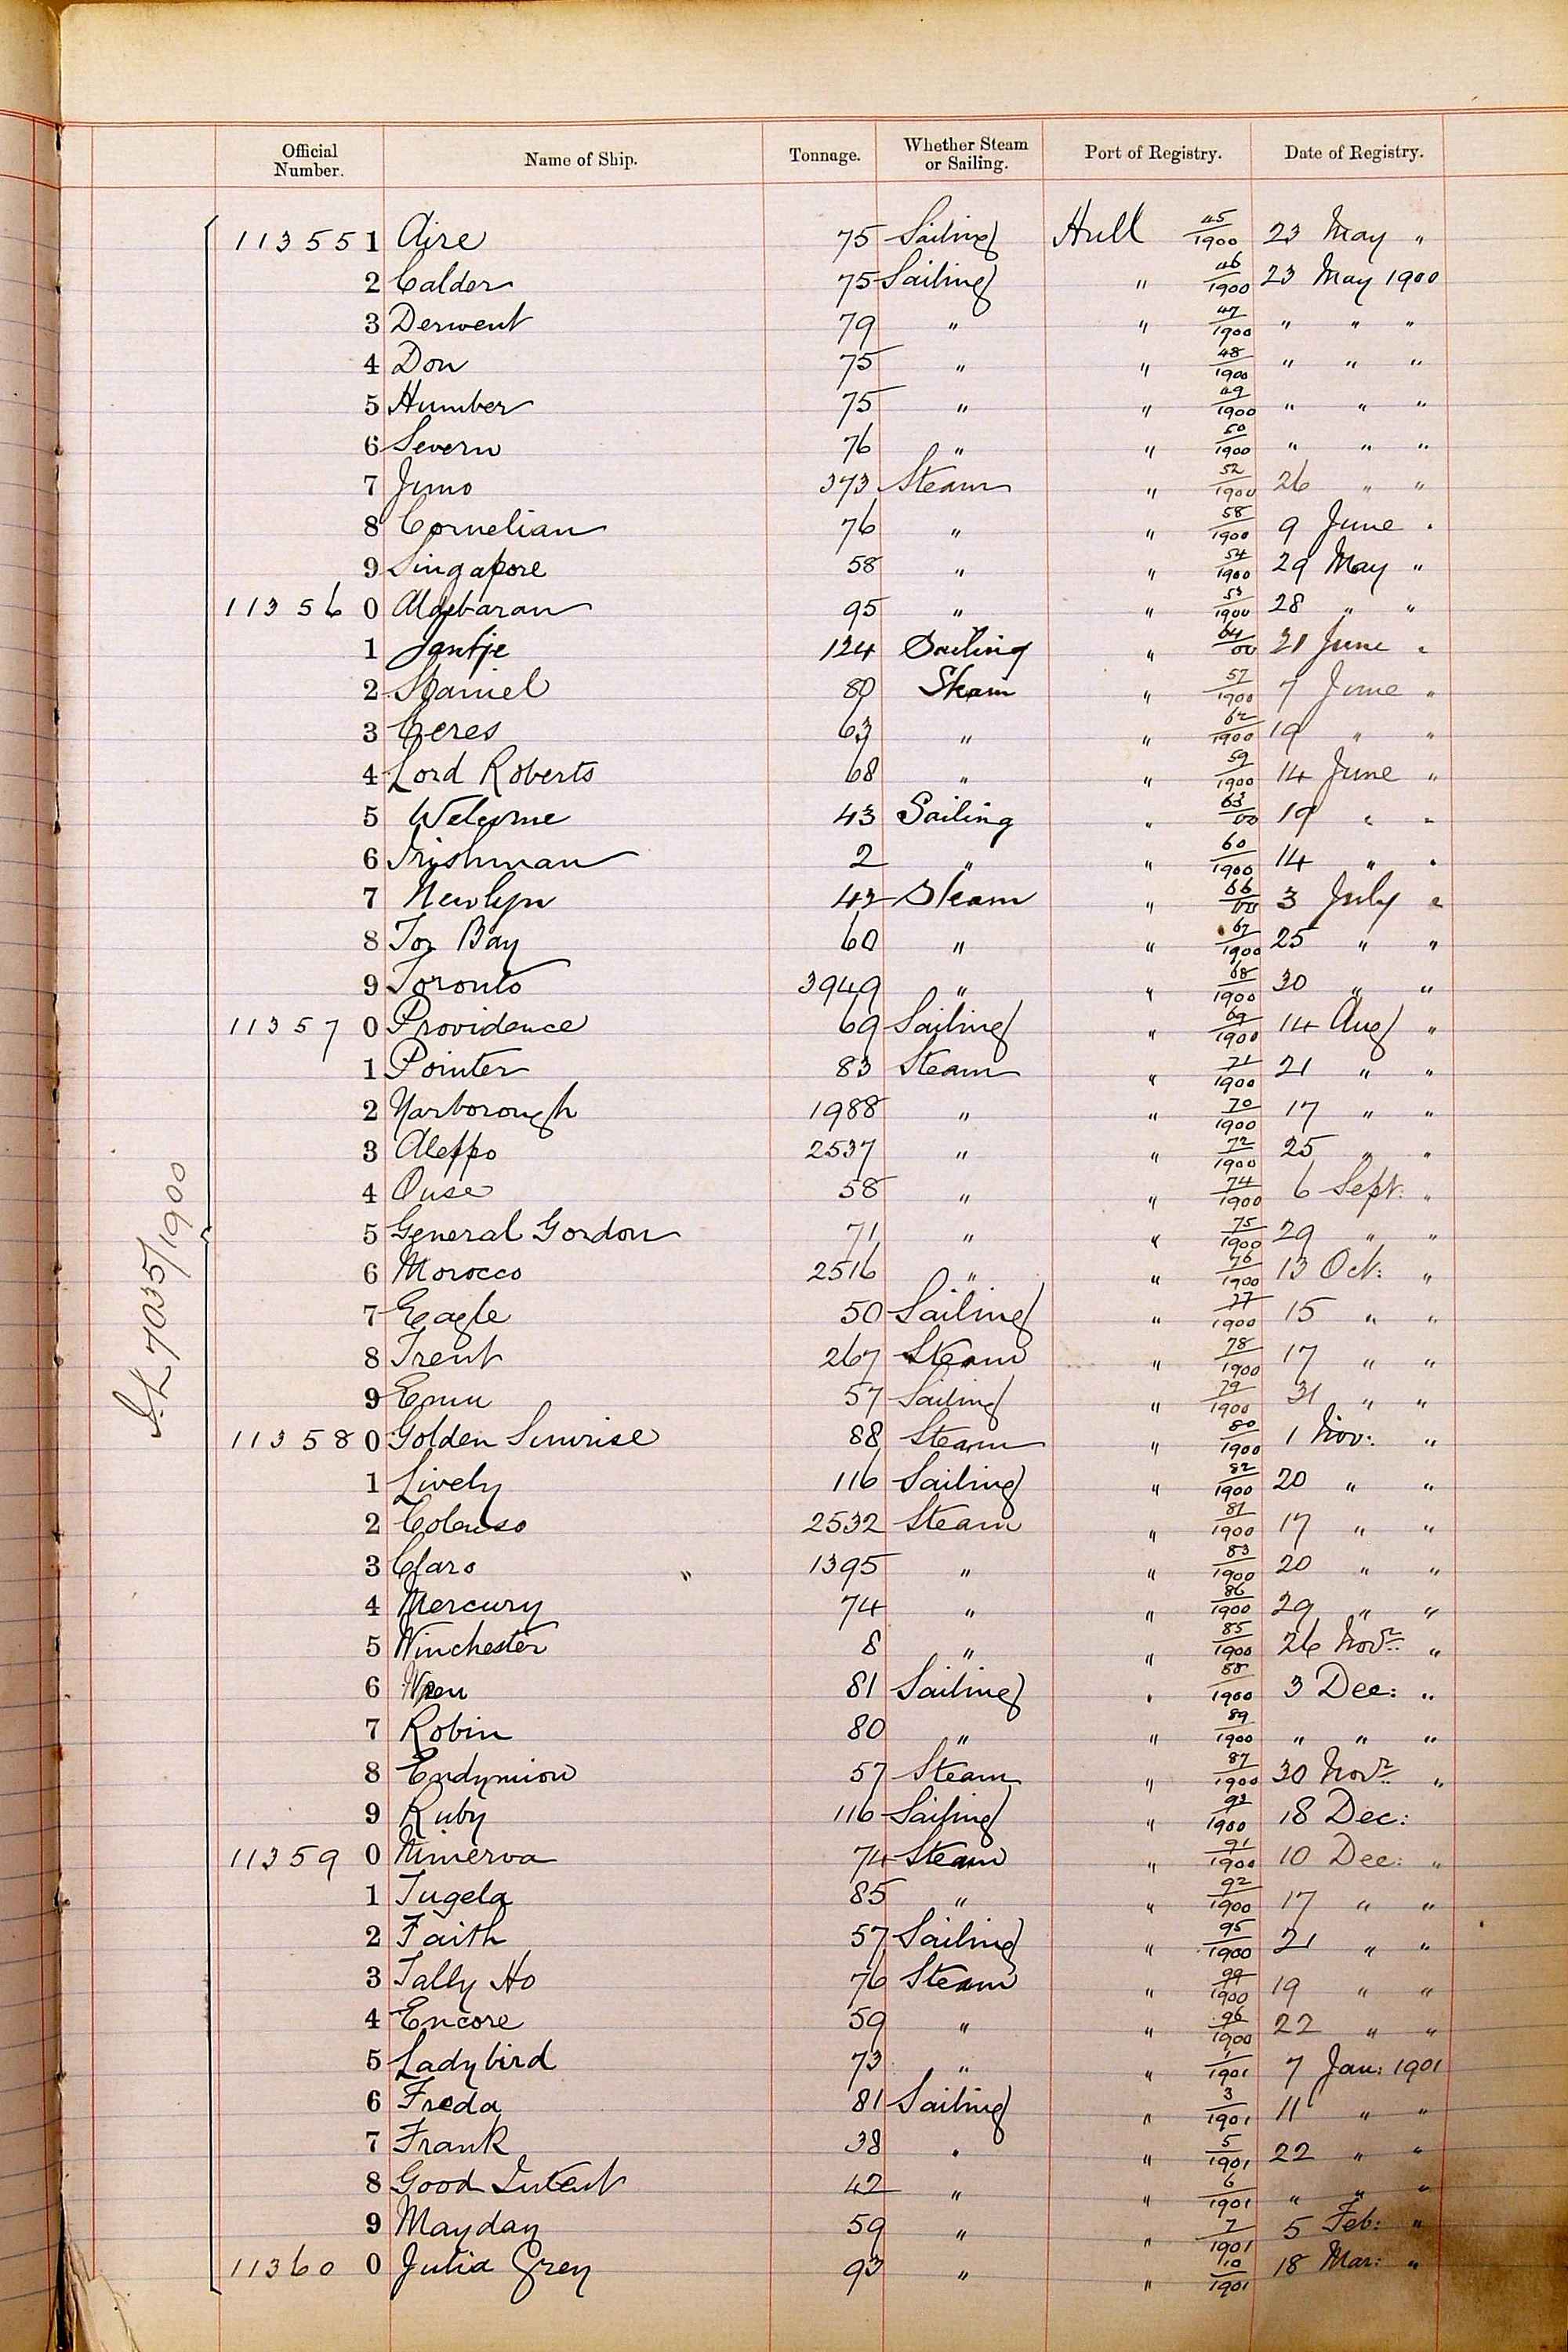 Official Number. Name of Ship. Tonnage. Whether Steam or Sailing. Port of Registry. Date of Registry.
113551 Aire 75 Sailing Hull 45/1900 23 May "
2 Calder 75 Sailing " 46/1900 23 May 1900
3 Derwent 79 " " 47/1900 " " "
4 Don 75 " " 48/1900 " " "
5 Humber 75 " " 49/1900 " " "
6 Severn 76 " " 50/1900 " " "
7 Juno 373 Steam " 52/1900 26 " "
8 Cornelian 76 " " 58/1900 9 June "
9 Singapore 58 " " 54/1900 29 May "
113560 Aldebaran 95 " " 53/1900 28 " "
1 Jantje 124 Sailing " 64/00 21 June "
2 Staniel 80 Steam " 57/1900 7 June "
3 Ceres 63 " " 62/1900 19 " "
4 Lord Roberts 68 " " 59/1900 14 June "
5 Welcome 43 Sailing " 63/00 19 " "
6 Irishman 2 " " 60/1900 14 " "
7 Newlyn 42 Steam " 66/00 3 July "
8 Tor Bay 60 " " 67/1900 25 " "
9 Toronto 3949 " " 68/1900 30 " "
113570 Providence 69 Sailing " 69/1900 14 Aug "
1 Pointer 83 Steam " 71/1900 21 " "
2 Yarborough 1988 " " 70/1900 17 " "
3 Aleppo 2537 " " 72/1900 25 " "
4 Ouse 58 " " 74/1900 6 Sept. "
5 General Gordon 71 " " 75/1900 29 " "
6 Morocco 2516 " " 76/1900 13 Oct: "
7 Eagle 50 Sailing " 77/1900 15 " "
8 Trent 267 Steam " 78/1900 17 " "
9 Emu 57 Sailing " 79/1900 31 " "
113580 Golden Sunrise 88 Steam " 80/1900 1 Nov: "
1 Lively 116 Sailing " 82/1900 20 " "
2 Colenso 2532 Steam " 81/1900 17 " "
3 Claro " 1395 " " 83/1900 20 " "
4 Mercury 74 " " 86/1900 29 " "
5 Winchester 8 " " 85/1900 26 Novr. "
6 Wren 81 Sailing " 88/1900 3 Dec: "
7 Robin 80 " " 89/1900 " " "
8 Endymion 57 Steam " 87/1900 30 Novr. "
9 Ruby 116 Sailing " 1900 18 Dec:
113590 Minerva 74 Steam " 91/1900 10 Dec: "
1 Tugela 85 " " 92/1900 17 " "
2 Faith 57 Sailing " 95/1900 21 " "
3 Tally Ho 76 Steam " 1900 19 " "
4 Encore 59 " " 96/1900 22 " "
5 Ladybird 73 " " 1/1901 7 Jan: 1901
6 Freda 81 Sailing " 3/1901 11 " "
7 Frank 38 " " 5/1901 22 " "
8 Good Intent 42 " " 6/1901 " " "
9 Mayday 59 " " 7/1901 5 Feb: "
113600 Julia Grey 93 " " 10/1901 18 Mar: "
7035/1900